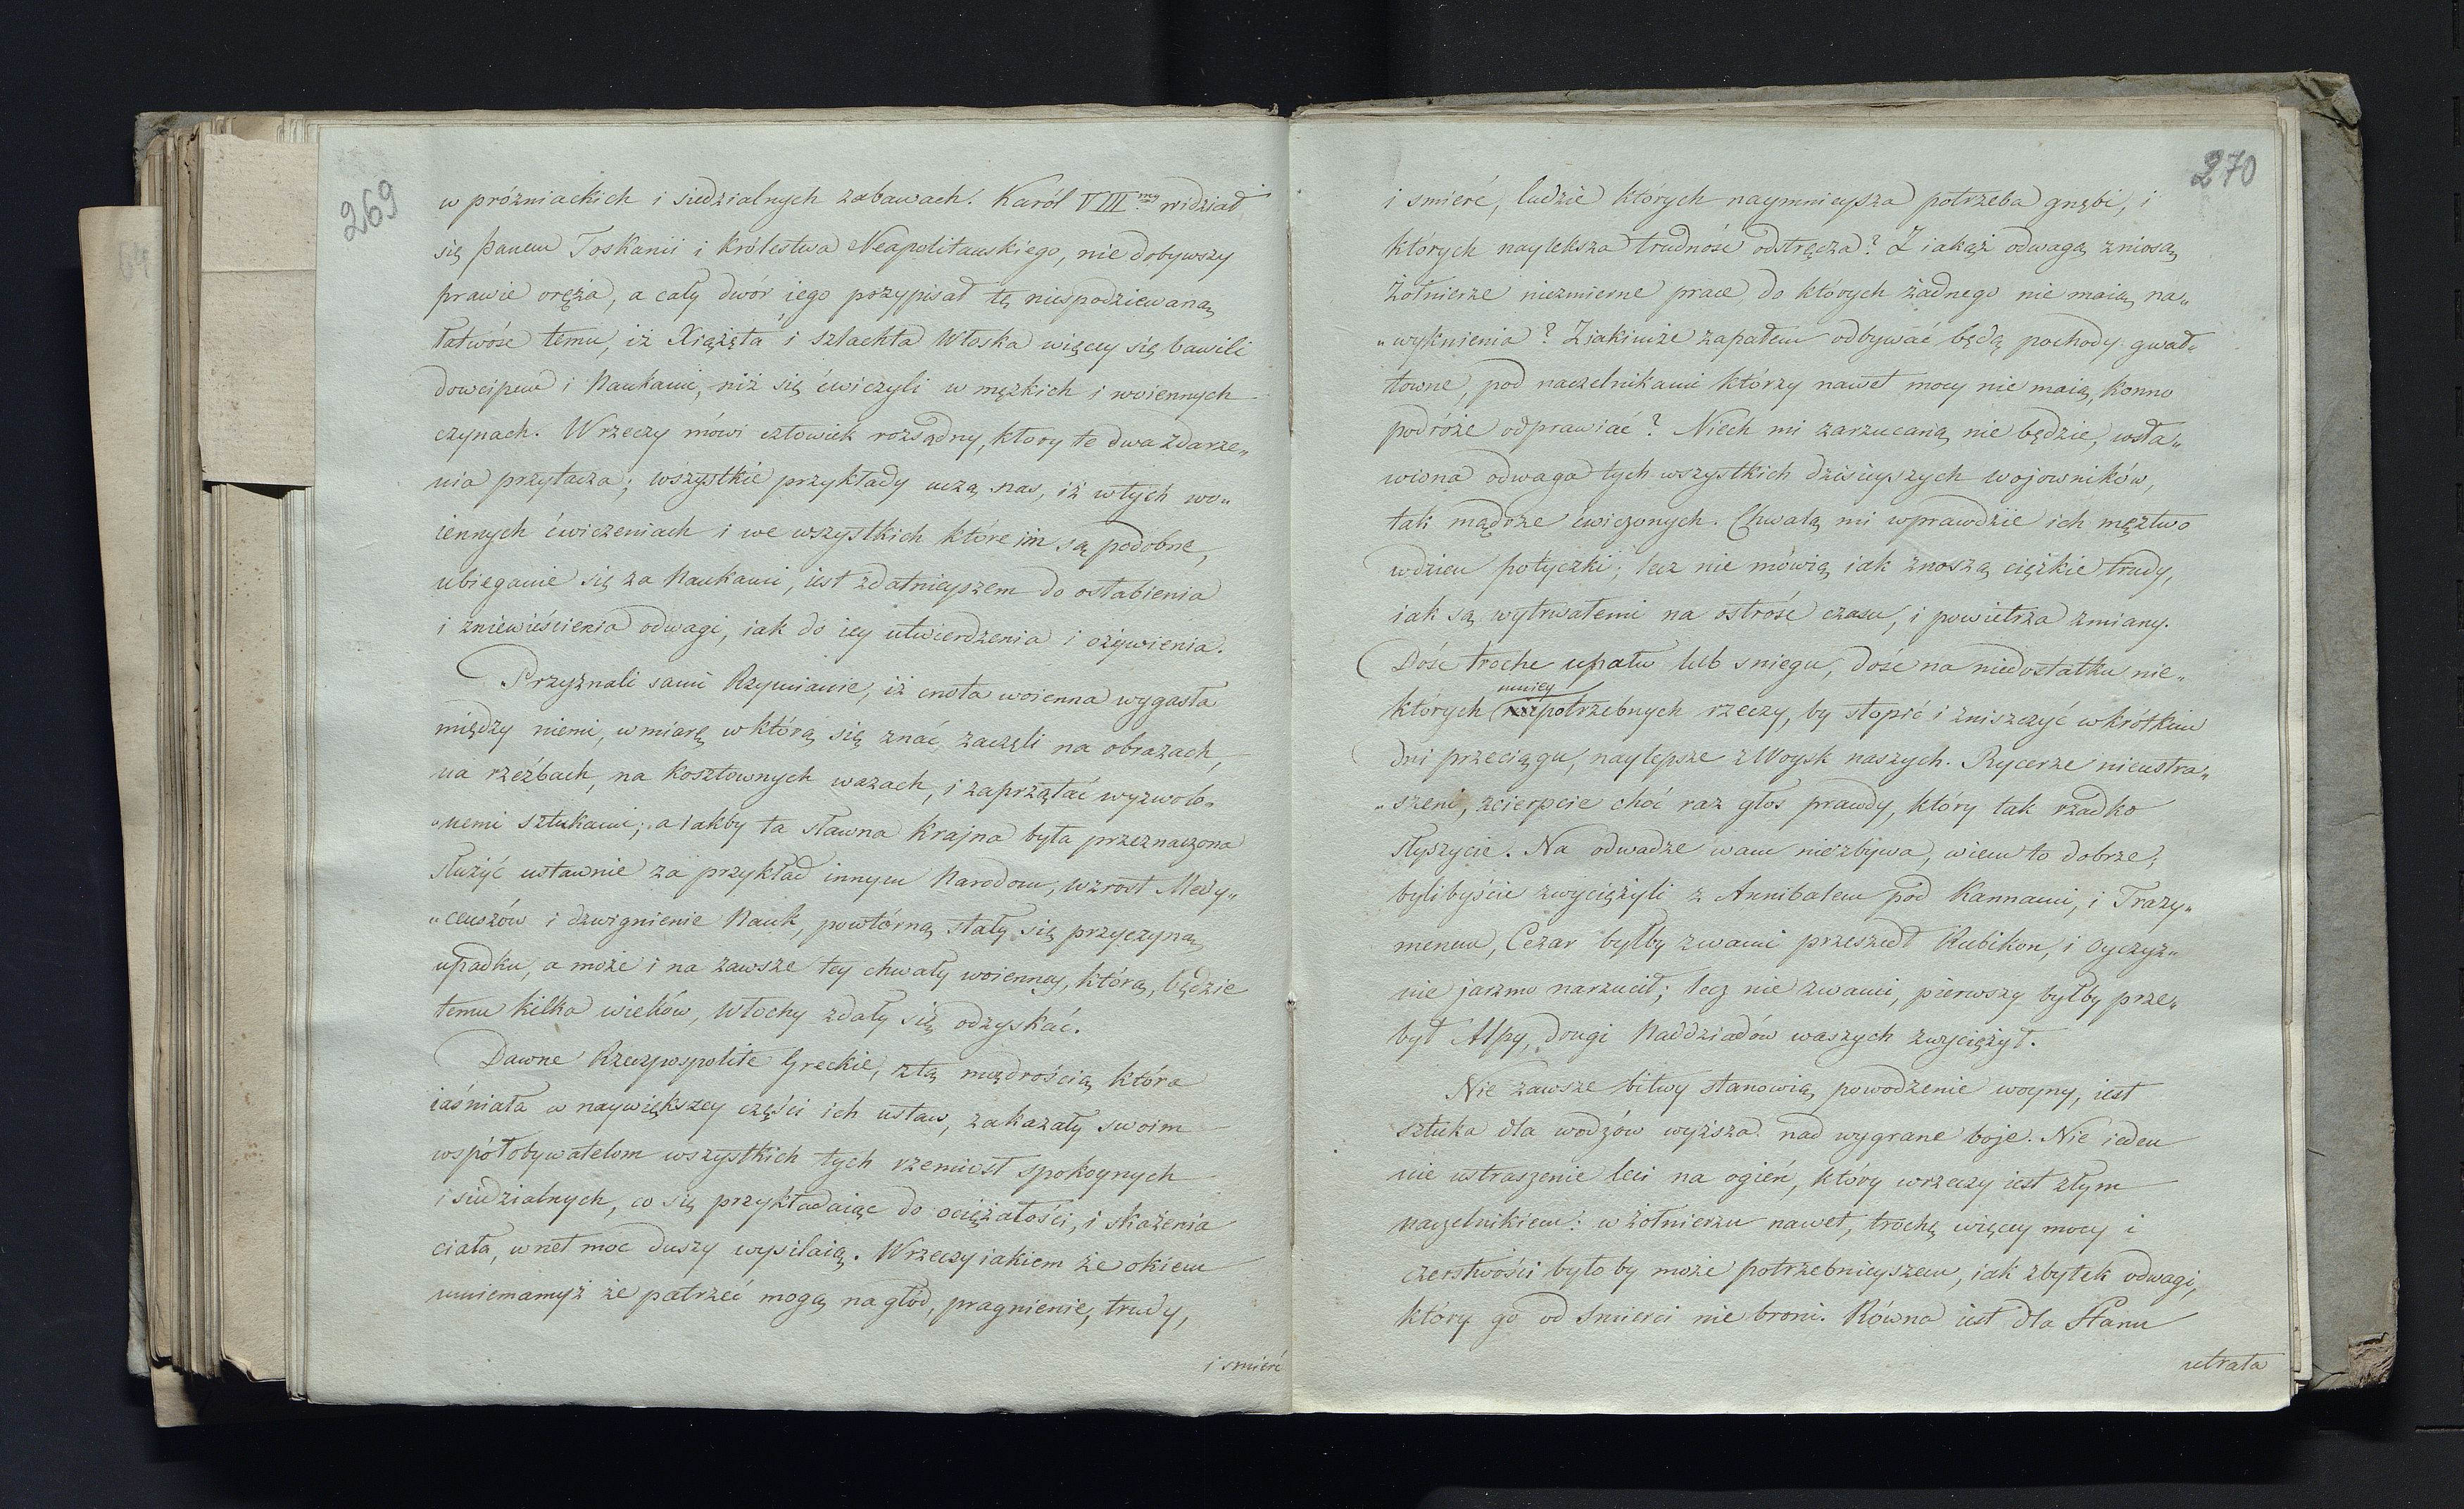 269
w próżniackich i siedzialnych zabawach. Karól VIIImy widział
się panem Toskanii i Królestwa Neapolitańskiego, nie dobywszy
prawie oręża, a cały dwór iego przypisał tę niespodziewaną
łatwość temu, iż Xiążęta i szlachta Włoska więcey się bawili
dowcipem i Naukami, niż się ćwiczyli w mężkich i woiennych
czynach. W rzeczy mówi człowiek rozsądny, który te dwa zdarze„
nia przytacza; wszystkie przykłady uczą nas, iż w tych wo„
iennych ćwiczeniach i we wszystkich które im są podobne,
ubieganie się za Naukami, iest zdatnieyszem do osłabienia
i zniewieścienia odwagi, iak do iey utwierdzenia i ożywienia.
Przyznali sami Rzymianie, iż cnota woienna wygasła
między niemi, w miarę w którą się znać zaczęli na obrazach,
na rzeźbach, na kosztownych wazach, i zaprzątać wyzwolo„
„nemi sztukami; a iakby ta sławna Krajna była przeznaczona
służyć ustawnie za przykład innym Narodom, wzrost Medy„
„ceuszów i dzwignienie Nauk, powtórną stały się przyczyną
upadku, a może i na zawsze tey chwały woienney, którą, będzie
temu kilka wieków, Włochy zdały się odzyskać.
Dawne Rzeczpospolite Greckie, z tą mądrością która
iaśniała w naywiększey części ich ustaw, zakazały swoim
współobywatelom wszystkich tych rzemiosł spokoynych
i siedzialnych, co się przykładaiąc do ociężałości, i skażenia
ciała, wnet moc duszy wysilaią. W rzeczy iakiem że okiem
mniemamyż że patrzeć mogą na głód, pragnienie, trudy,
i smierć
270
i smierć, ludzie których naymnieysza potrzeba gnębi, i
których nayleksza trudność odstręcza? Z iakąż odwagą zniosą
Żołnierze niezmierne prace do których żadnego nie maią na„
„wyknienia? Z iakimże zapałem odbywać będą pochody gwał„
towne, pod naczelnikami którzy nawet mocy nie maią, konno
podróże odprawiać? Niech mi zarzucaną nie będzie, wsła„
wiona odwaga tych wszystkich dzisieyszych wojowników,
tak mądrze ćwiczonych. Chwalą mi wprawdzie ich męztwo
w dzień potyczki; lecz nie mówią iak znoszą ciężkie trudy,
iak są wytrwałemi na ostrość czasu, i powietrza zmiany.
Dość trochę upału lub sniegu, dość na niedostatku nie„
mniey
których potrzebnych rzeczy, by stopić i zniszczyć w krótkim
dni przeciągu, naylepsze z Woysk naszych. Rycerze nieustra„
„szeni, zcierpcie choć raz głos prawdy, który tak rzadko
słyszycie. Na odwadze wam niezbywa, wiem to dobrze;
bylibyście zwyciężyli z Annibalem pod Kannami, i Trazy„
menem, Cezar byłby z wami przeszedł Rubikon, i Oyczyz„
nie jarzmo narzucił; lecz nie z wami, pierwszy byłby prze„
był Alpy, drugi Naddziadów waszych zwyciężył.
Nie zawsze bitwy stanowią powodzenie woyny, iest
sztuka dla wodzów wyższa nad wygrane boje. Nie ieden
nie ustraszenie leci na ogień, który w rzeczy iest złym
naczelnikiem: w żołnierzu nawet, trochę więcey mocy i
czerstwości było by może potrzebnieyszem, iak zbytek odwagi,
który go od smierci nie broni. Równa iest dla Stanu
utrata